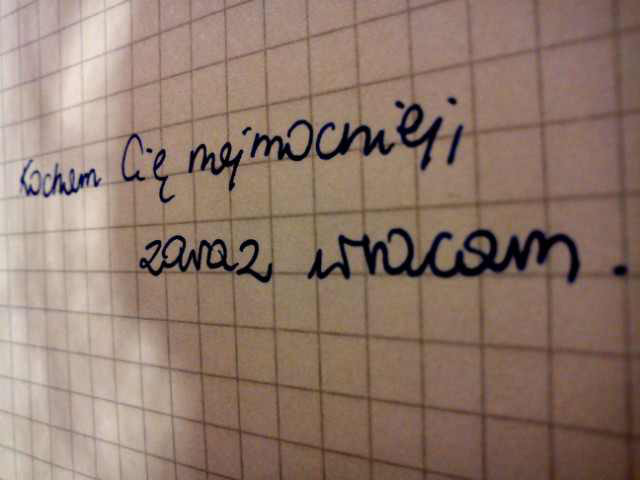 Kocham Cię najmocniej,
zaraz wracam.